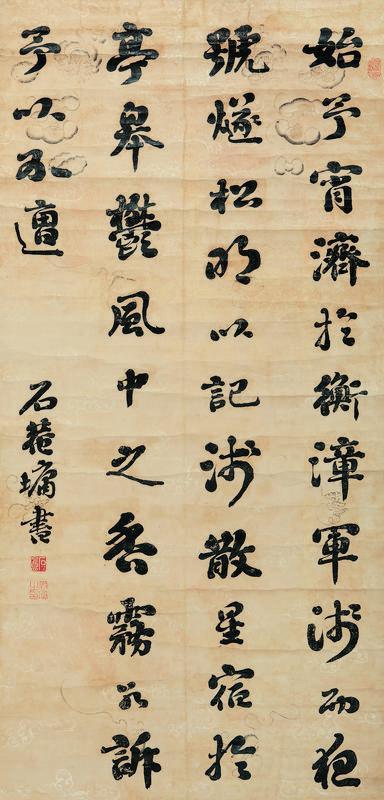 始予宵濟於衡漳軍涉而夜
號燧松明以記淺散星宿於
亭皋鬱風中之香霧若訴
予以不遭
石菴墉書